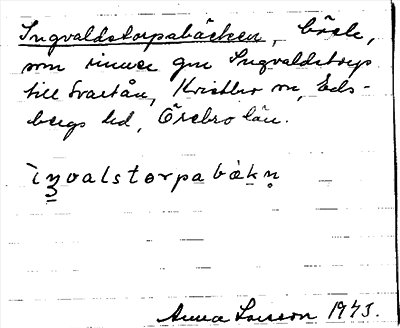 Ingvaldstorpabäcken, bäck,
som rinner gm Ingvaldstorp
till Svartån, Kvistbro sn, Eds-
bergs hd, Örebro län.
ìŋvalstorpabàkn̥
Anna Larsson 1943.